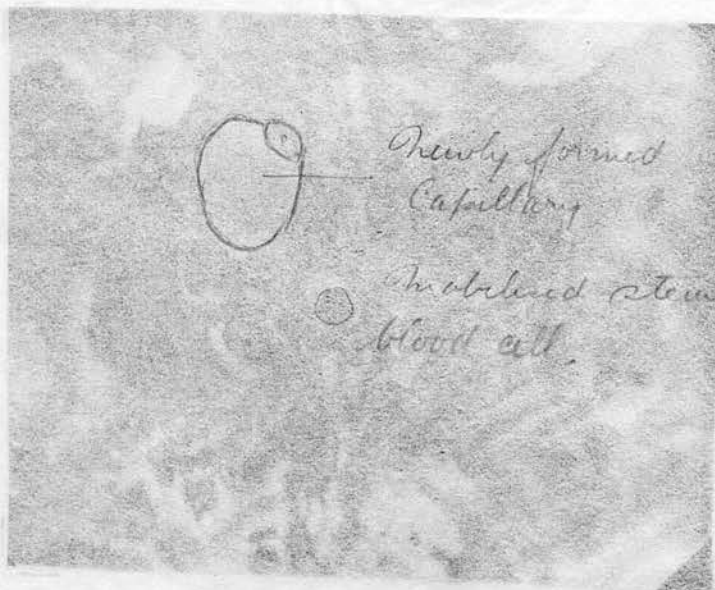 Newly formed
Capillary
Mobilized stem
blood cell